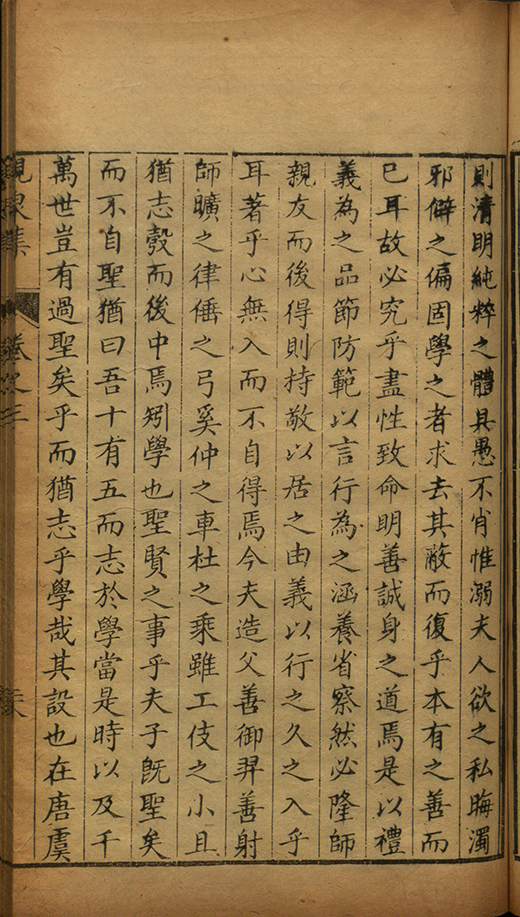 則清明純粹之體具愚不肖惟溺夫人欲之私晦濁
邪僻之偏固學之者求去其蔽而復乎本有之善而
已耳故必究乎盡性致命明善誠身之道焉是以禮
義為之品節防範以言行為之涵養省察然必隆師
親友而後得則持敬以居之由義以行之久之入乎
耳著乎心無入而不自得焉今夫造父善御羿善射
師曠之律倕之弓奚仲之車杜之乘雖工伎之小且
猶志彀而後中焉矧學也聖賢之事乎夫子既聖矣
而不自聖猶曰吾十有五而志於學當是時以及千
萬世豈有過聖矣乎而猶志乎學哉其設也在唐虞